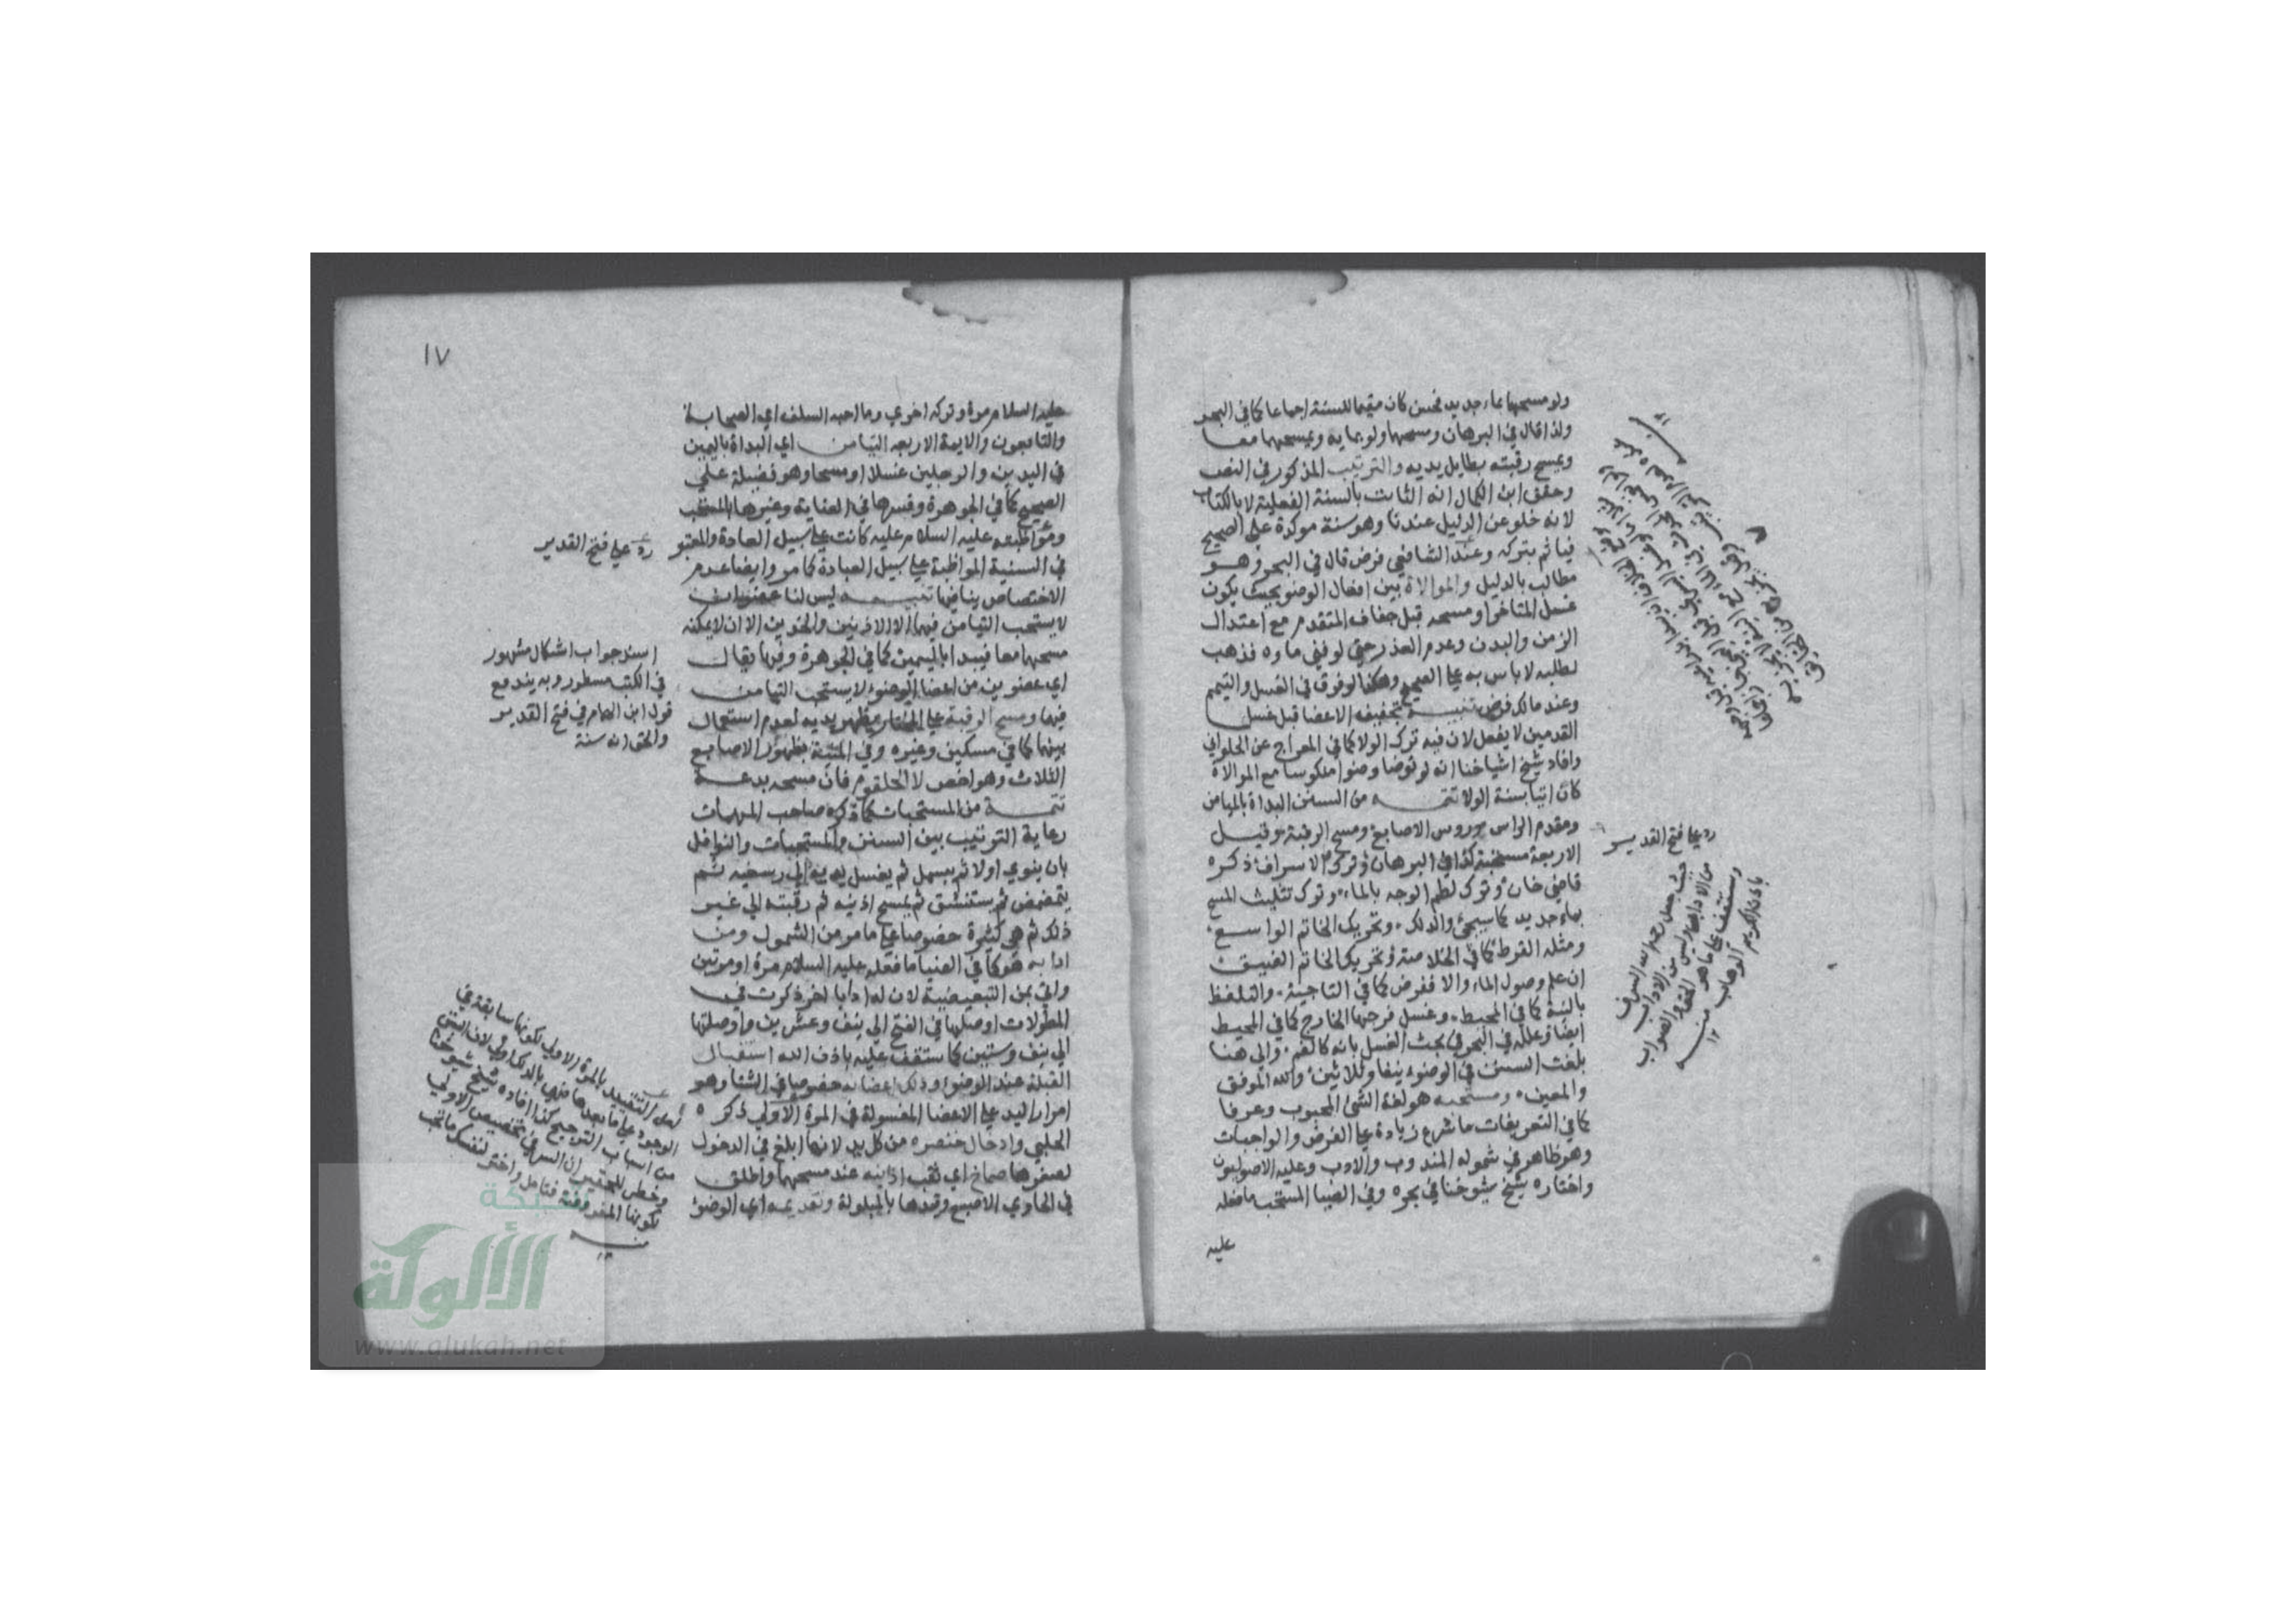 ولو مسحهما بماء جديد فحسن كان مقيما للسنة اجماعا كما في البحر
ولذا قال في البرهان ومسحهما ولو بمايه ويمسحهما معا
ويمسح رقبته بطايل يديه والترتيب المذكور في النص
وحقق ابن الكمال انه الثابت بالسنة الفعلية لا بالكتاب
لانه خلو عن الدليل عندنا وهو سنة موكدة على الصحيح
فياثم بتركه وعند الشافعي فرض قال في البحر وهو
مطالب بالدليل والموالاة بين افعال الوضو بحيث يكون
غسل المتاخر او مسحه قبل جفاف المتقدم مع اعتدال
الزمن والبدن وعدم العذر حتى لو فني ماوه فذهب
لطلبه لا باس به على الصحيح وهكذا لو فرق في الغسل والتيمم
وعند مالك فرض تنبيه تجفيفه الاعضا قبل غسل
القدمين لا يفعل لان فيه ترك الولا كما في المعراج عن الحلواني
وافاد شيخ اشياخنا انه لو توضا وضوا منكوسا مع الموالاة
كان اتيا بسنة الولا تتمه من السنن البداة بالميامن
ومقدم الراس وروس الاصابع ومسح الرقبة وقيل
الاربعة مستحبة كذا في البرهان وترك الاسراف ذكره
قاضي خان وترك لطم الوجه بالماء وترك تثليث المسح
بماء جديد كما سيجئ والدلك وتحريك الخاتم الواسع
ومثله القرط كما في الخلاصة وتحريك الخاتم الضيق
ان علم وصول الماء والا ففرض كما في التاجية والتلفظ
بالنية كما في المحيط وغسل فرجها الخارج كما في المحيط
ايضا وعلله في البحر في بحث الغسل بانه كالفم والى هنا
بلغت السنن في الوضوء نيفا وثلاثين والله الموفق
والمعين ومستحبه هو لغة الشئ المحبوب وعرفا
كما في التعريفات ما شرع زيادة على الفرض والواجبات
وهو ظاهر في شموله المندوب والادب وعليه الاصوليون
واختاره شيخ شيوخنا في بحره وفي الضيا المستحب ما فعله
عليه
رد على فتح القدير
حيث جعل رحمه الله السرف
من الاداب
وستقف على ما هو الحق والصواب
باذن الكريم الوهاب منه
١٧
عليه السلام مرة وتركه اخرى وما احبه السلف اي الصحابة
والتابعون والايمة الاربعه التيامن اي البداة باليمين
في اليدين والرجلين غسلا او مسحا وهو فضيلة على
الصحيح كما في الجوهرة وفسرها في العناية وغيرها بالمستحب
ومواظبته عليه السلام عليه كانت على سبيل العادة والمعتبر
في السنية المواظبة على سبيل العبادة كما مر وايضا عدم
الاختصاص ينافيها تنبيه ليس لنا عضوان
لا يستحب التيامن فيهما الا الاذنين والخدين الا ان لا يمكنه
مسحهما معا فيبدا باليمين كما في الجوهرة وفيها يقال
اي عضوين من اعضا الوضوء لا يستحب التيامن
فيهما ومسح الرقبة على المختار بظهر يديه لعدم استعمال
بينهما كما في مسكين وغيره وفي المنية بظهور الاصابع
الثلاث وهو اخص لا الحلقوم فان مسحه بدعة
تتمة من المستحبات كما ذكره صاحب المهمات
رعاية الترتيب بين السنن والمستحبات والنوافل
بان ينوي اولا ثم يبسمل ثم يغسل يديه الى رسغيه ثم
يتمضمض ثم يستنشق ثم يمسح اذنيه ثم رقبته الى غير
ذلك ثم هي كثيرة خصوصا على ما مر من الشمول ومن
ادابه هو كما في الضيا ما فعله عليه السلام مرة او مرتين
واتى بمن التبعيضية لان له ادابا اخر ذكرت في
المطولات اوصلها في الفتح الى نيف وعشرين واوصلتها
الى نيف وستين كما ستقف عليه باذن الله استقبال
القبلة عند الوضوء ودلك اعضايه خصوصا في الشتا وهو
امرار اليد على الاعضا المغسولة في المرة الاولى ذكره
الحلبي وادخال خنصره من كل يد لانها ابلغ في الدخول
لصغرها صماخ اي ثقب اذنيه عند مسحهما واطلق
في الحاوي الاصبع وقيدها بالمبلولة وتقديمه اي الوضوء
رد على فتح القدير
اسند جواب اشكال مشهور
في الكتب مسطور وبه يندفع
قول ابن الهمام في فتح القدير
والحق انه سنة
لعل التقييد بالمرة الاولى لكونها سابقة في
الوجود على ما بعدها فهي بالدلك اولى لان السبق
من اسباب الترجيح كذا افاده شيخ شيوخنا
وخطر للحقير ان السر في تخصيص الاولى
بكونها المفروضة فتامل واختر لنفسك ما تحب
منه
شبكة
الألوكة
www.alukah.net